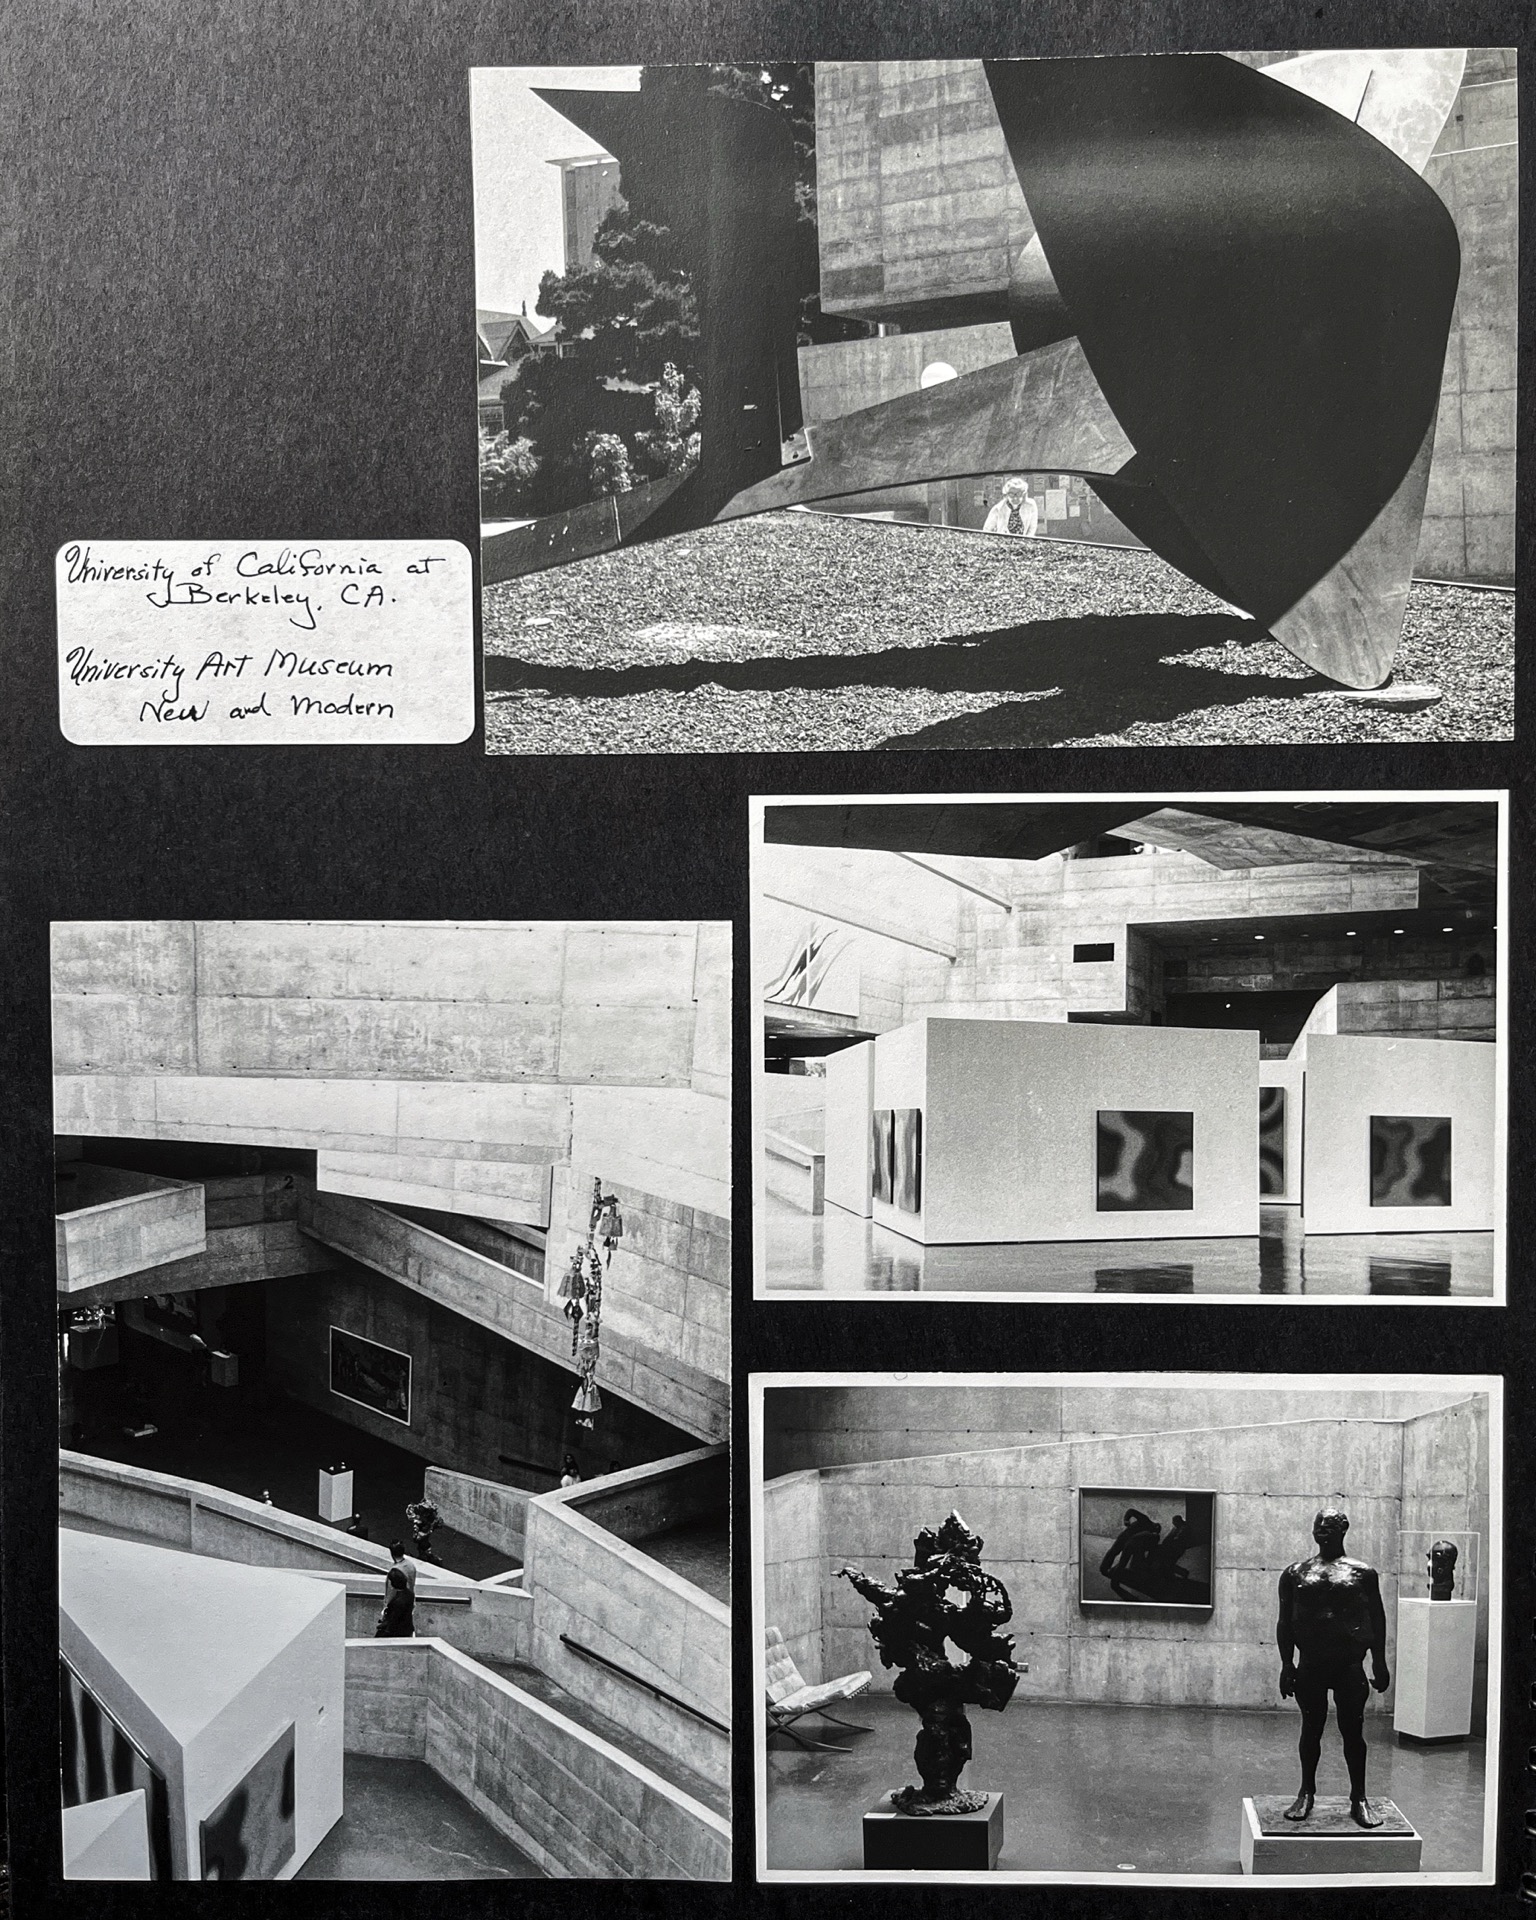 University of California at
Berkeley, CA.
University Art Museum
New and Modern
2